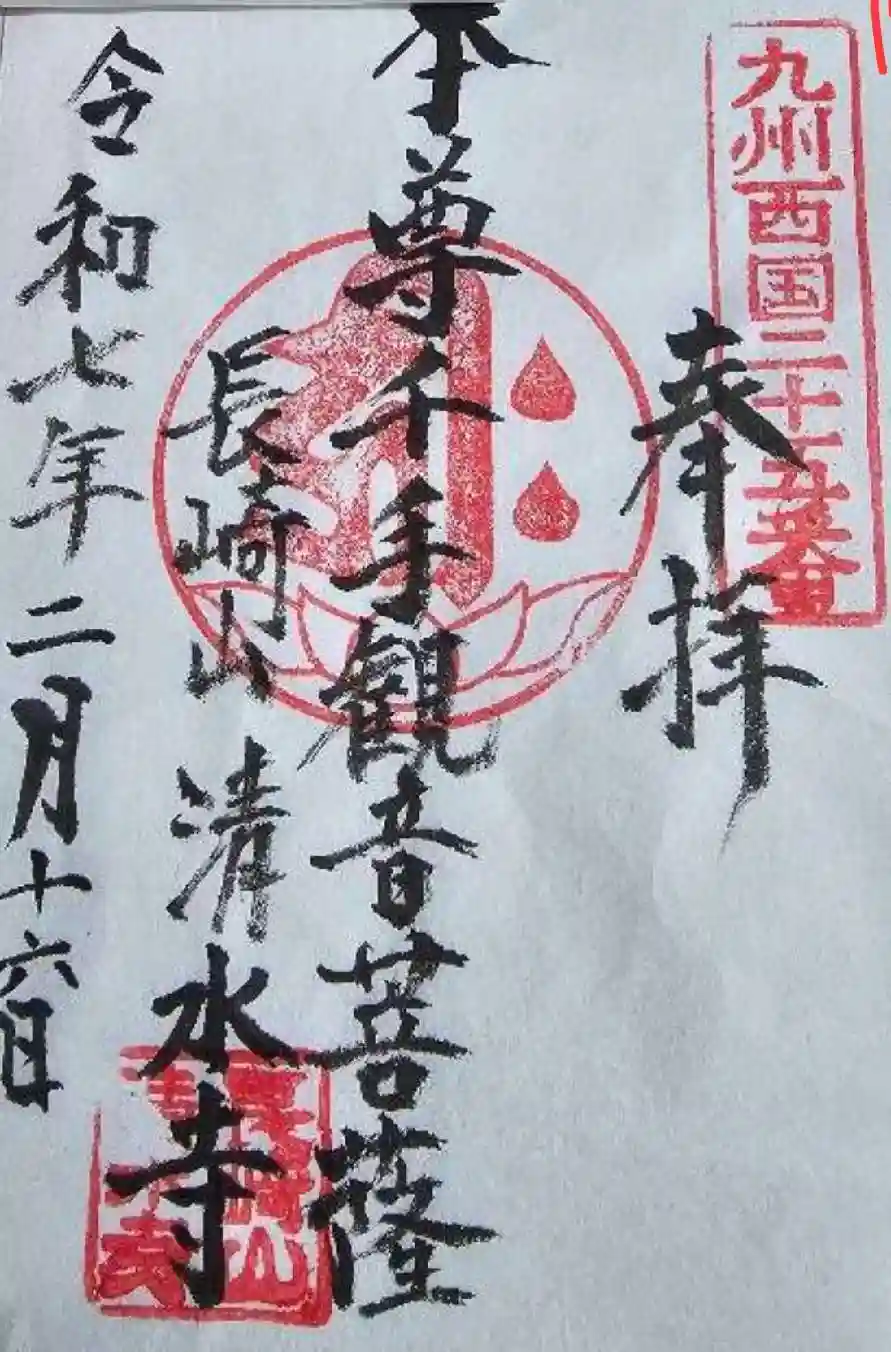 九州西国二十五番
奉拝
本尊千手観音菩薩
長崎山 清水寺
令和七年二月十六日